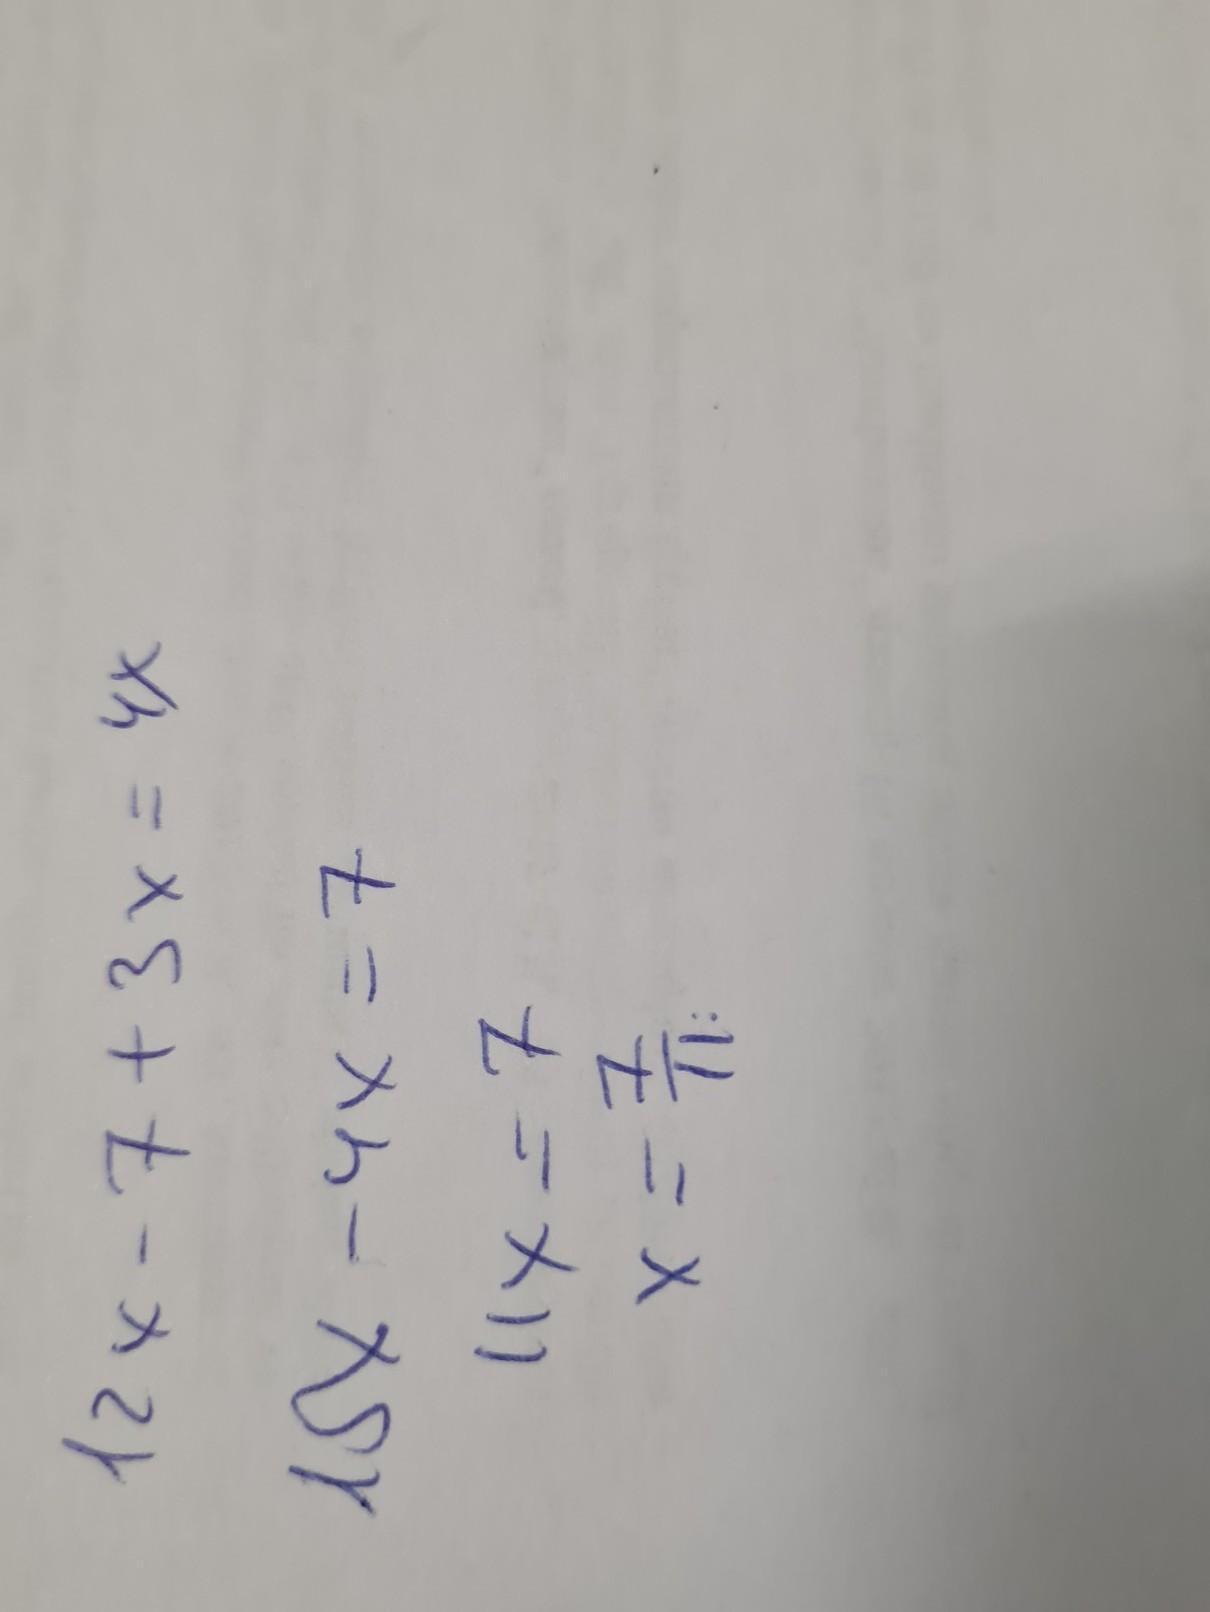 12x - 7 + 3x = 4x
15x - 4x = 7
11x = 7
x = 7/11